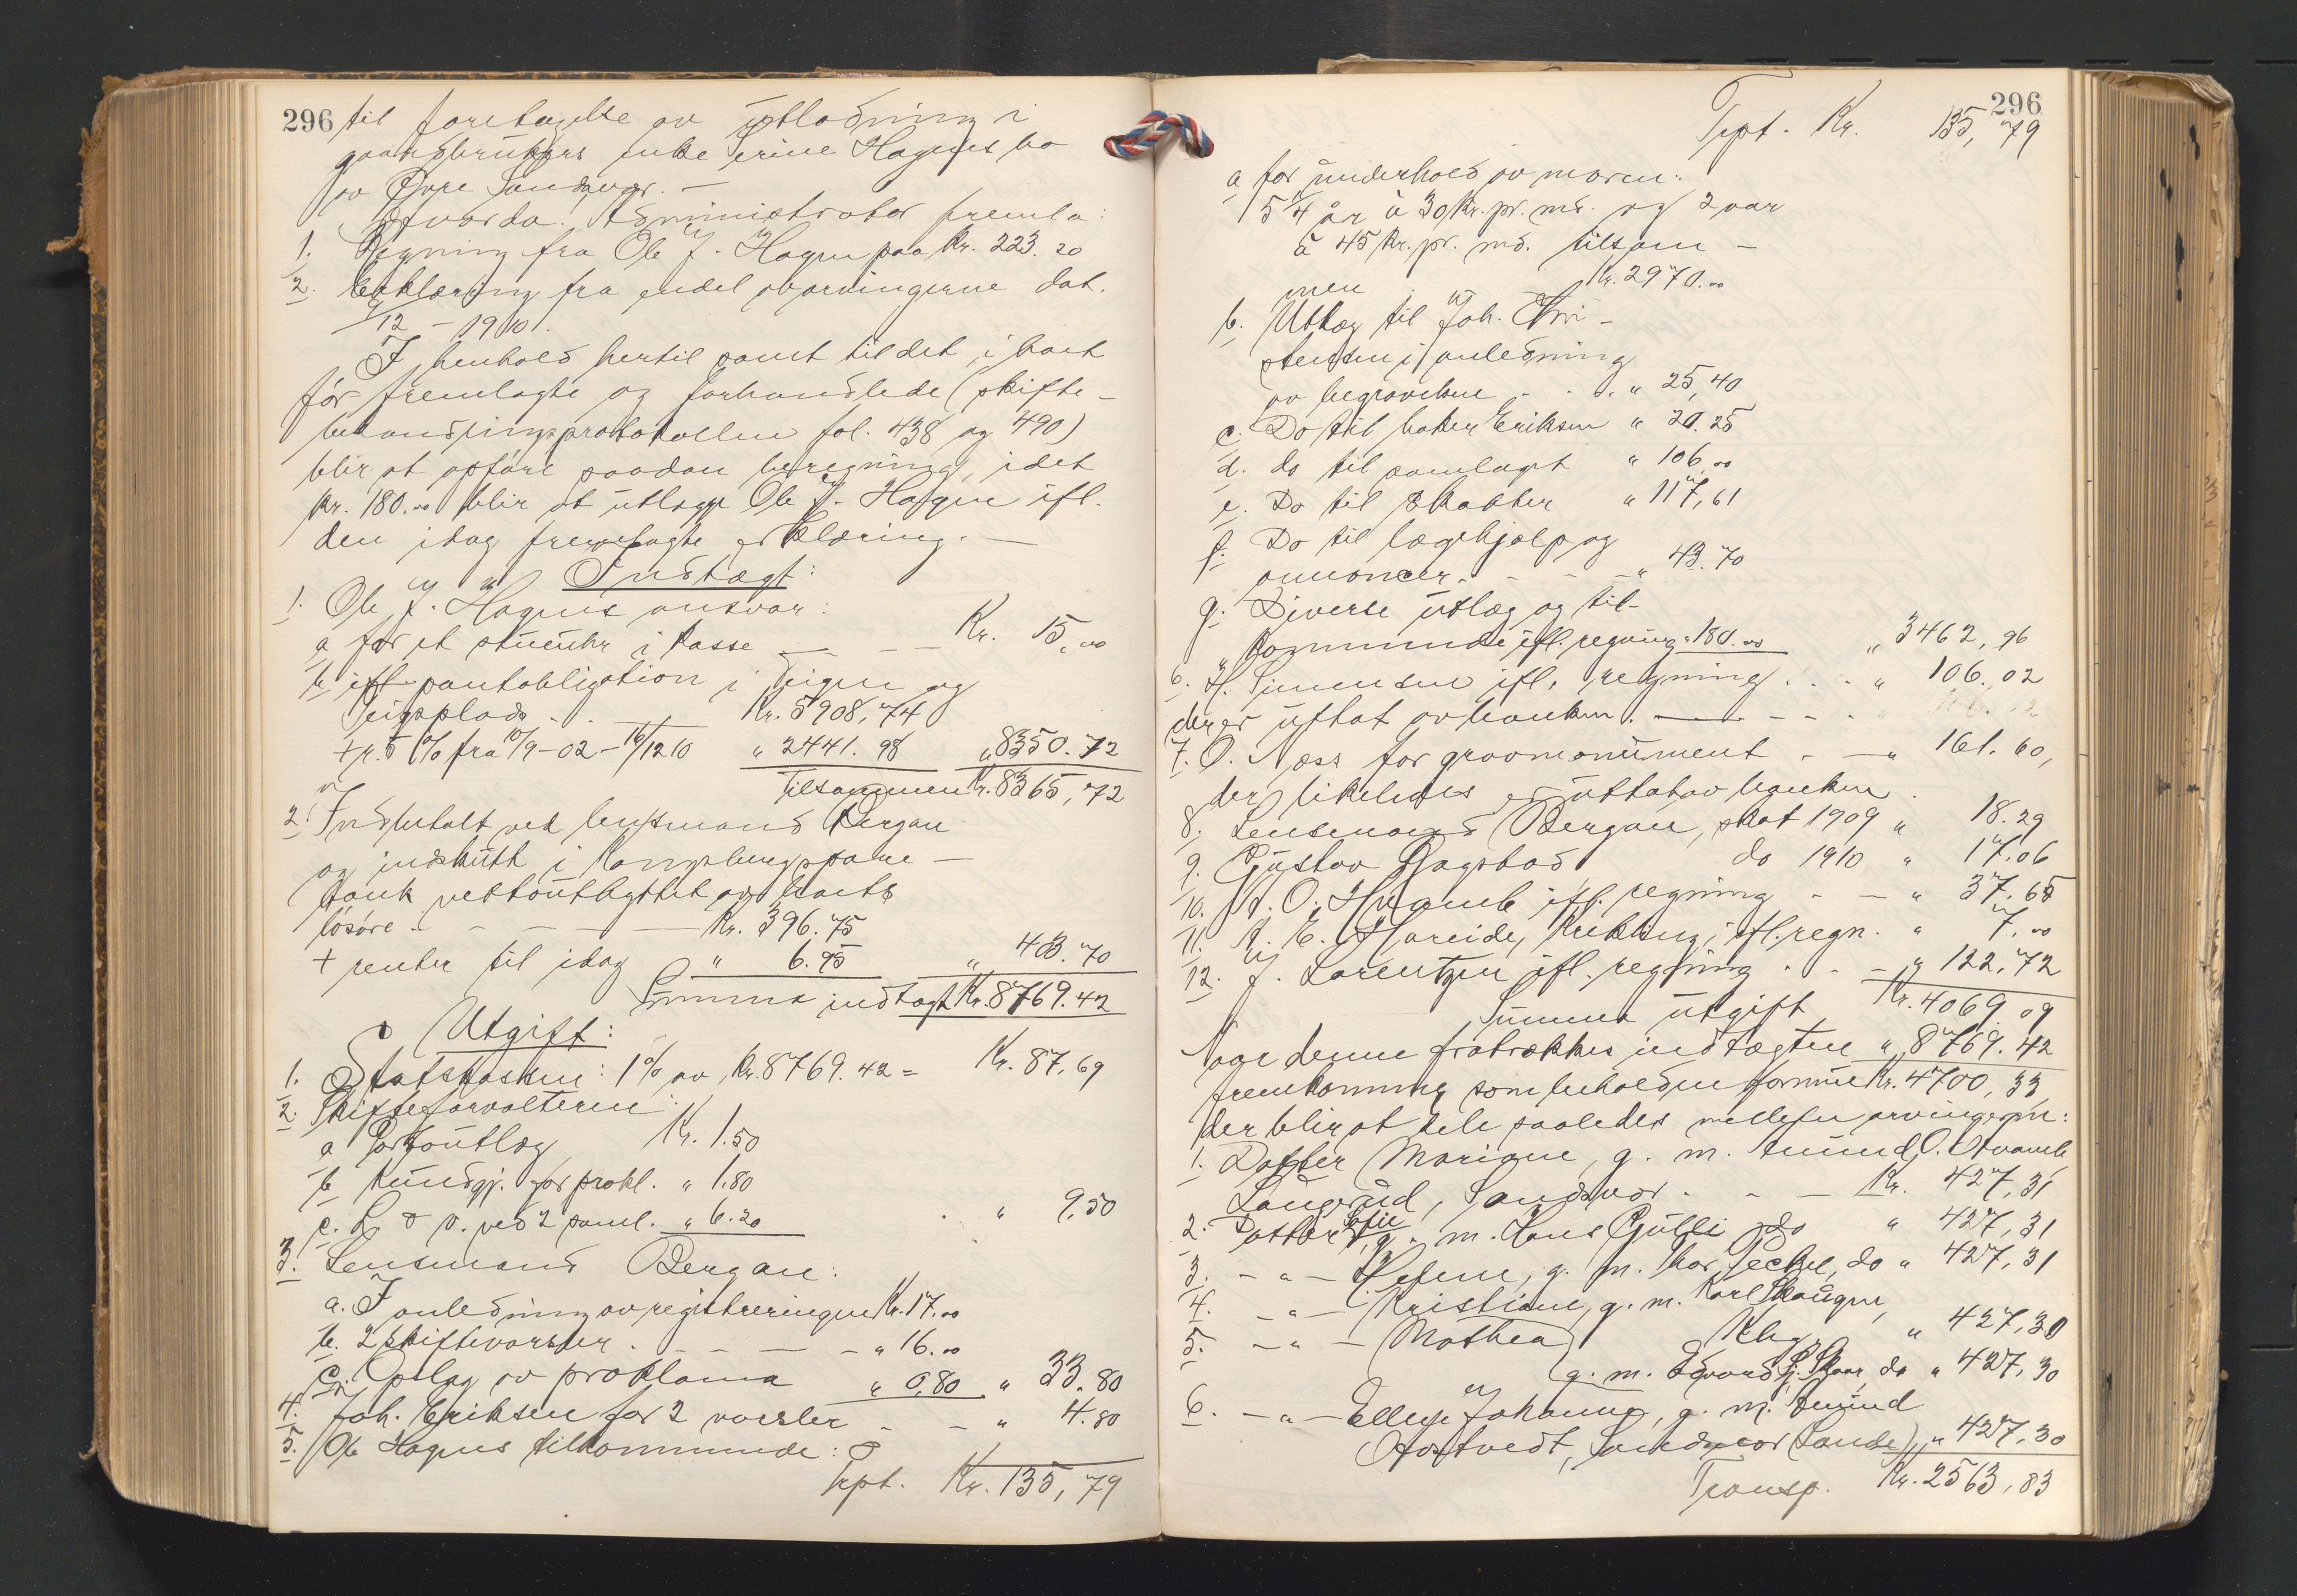 296 til foretagelse av utlodning i
gaardbrukers enke Serine Hagens bo
av Øvre Sandsvær. —
Hvorda. Administrator fremla:
1. Regning fra Ole J. Hagen paa Kr. 223.20
2. Erklæring fra endel av arvingerne dat.
9/12 - 1910.
I henhold hertil samt til det i boet
før fremlagte og forhandlede (skifte-
behandlingsprotokollen fol. 438 og 490)
blir at opføre saadan beregning, idet
Kr. 180.00 blir at utlægge Ole J. Hagen ifl.
den idag fremlagte erklæring. —
Indtægt:
1. Ole J. Hagens ansvar:
a for et stueuhr i kasse — — — Kr. 15.00
b ifl. pantobligation i Teigen og
Teigsplads . . — Kr. 5908,74
+ r. 5 % fra 10/9-02 - 16/12 10 " 2441.98 " 8350.72
Tilsammen Kr. 8365,72
2. Indbetalt ved lensmand Bergan
og indskutt i Kongsberg spare-
bank nettoutbyttet av boets
løsøre . — — — Kr. 396.75
+ renter til idag " 6.95 " 403.70
Summa indtægt Kr. 8769.42
Utgift:
1. Statskassen: 1% av Kr. 8769.42 = Kr. 87,69
2. Skifteforvalteren:
a Portoutlæg Kr. 1.50
b Kundgj. for prokl. " 1.80
c. L & S. ved 2 saml. " 6.20 . " 9,50
3. Lensmand Bergan:
a. I anledning av registreringen Kr. 17.00
b. 2 skiftevarsler . — — — " 16.00
c. Opslag av proklama " 0,80 " 33.80
4. Joh. Eriksen for 2 varsler - — " 4.80
5. Ole Hagens tilkommende:
Trpt. Kr. 135,79
296
Trpt. Kr. 135,79
a for underhold av moren:
5 1/4 år à 30 Kr. pr. md. og 2 aar
à 45 Kr. pr. md. tilsam-
men Kr. 2970.00
b. Utlæg til Joh. Kri-
stensen i anledning
av begravelsen - . . " 25,40
c. Do til baker Eriksen " 20.25
d. do til samlaget " 106.00
e. Do til skatter " 117,61
f. Do til lægehjælp og
annoncer . - - — " 43.70
g. Diverse utlæg og til-
kommende ifl. regning " 180.00 " 3462,96
6. H. Simensen ifl. regning . . . " 106.02
der er uttat av banken. — — - - .
7. O. Næss for gravmonument - — " 161.60,
der likeledes er uttat av banken.
8. Lensmand Bergan, skat 1909 " 18.29
9. Gustav Bagstad do 1910 " 17.06
10. A. O. Hvamb ifl. regning - — " 37.65
11. K. E. Hareide, Krekling, ifl. regn. " 7.00
12. J. Lorentzen ifl. regning . . - " 122,72
Summa utgift Kr. 4069,09
Naar denne fratrækkes indtægten " 8769.42
fremkommer som beholden formue Kr. 4700,33
der blir at dele saaledes mellem arvingerne:
1. Datter Mariane, g. m. Amund O. Hvamb
Langerud, Sandsvær. - - — Kr. 427,31
2. Datter Sofie, g. m. Hans Gulli do " 427,31
3. - " - Helene, g. m. Thor Teckel, do " 427,31
4. - " - Kristiane, g. m. Karl Skaugen,
Kbg. " 427,30
5. - " - Mathea
g. m. Edvard J. Skaar, do " 427,30
6. - " - Ellen Johanne, g. m. Amund
Aavtvedt, Sandsvær (Sande) " 427,30
Transp. Kr. 2563,83